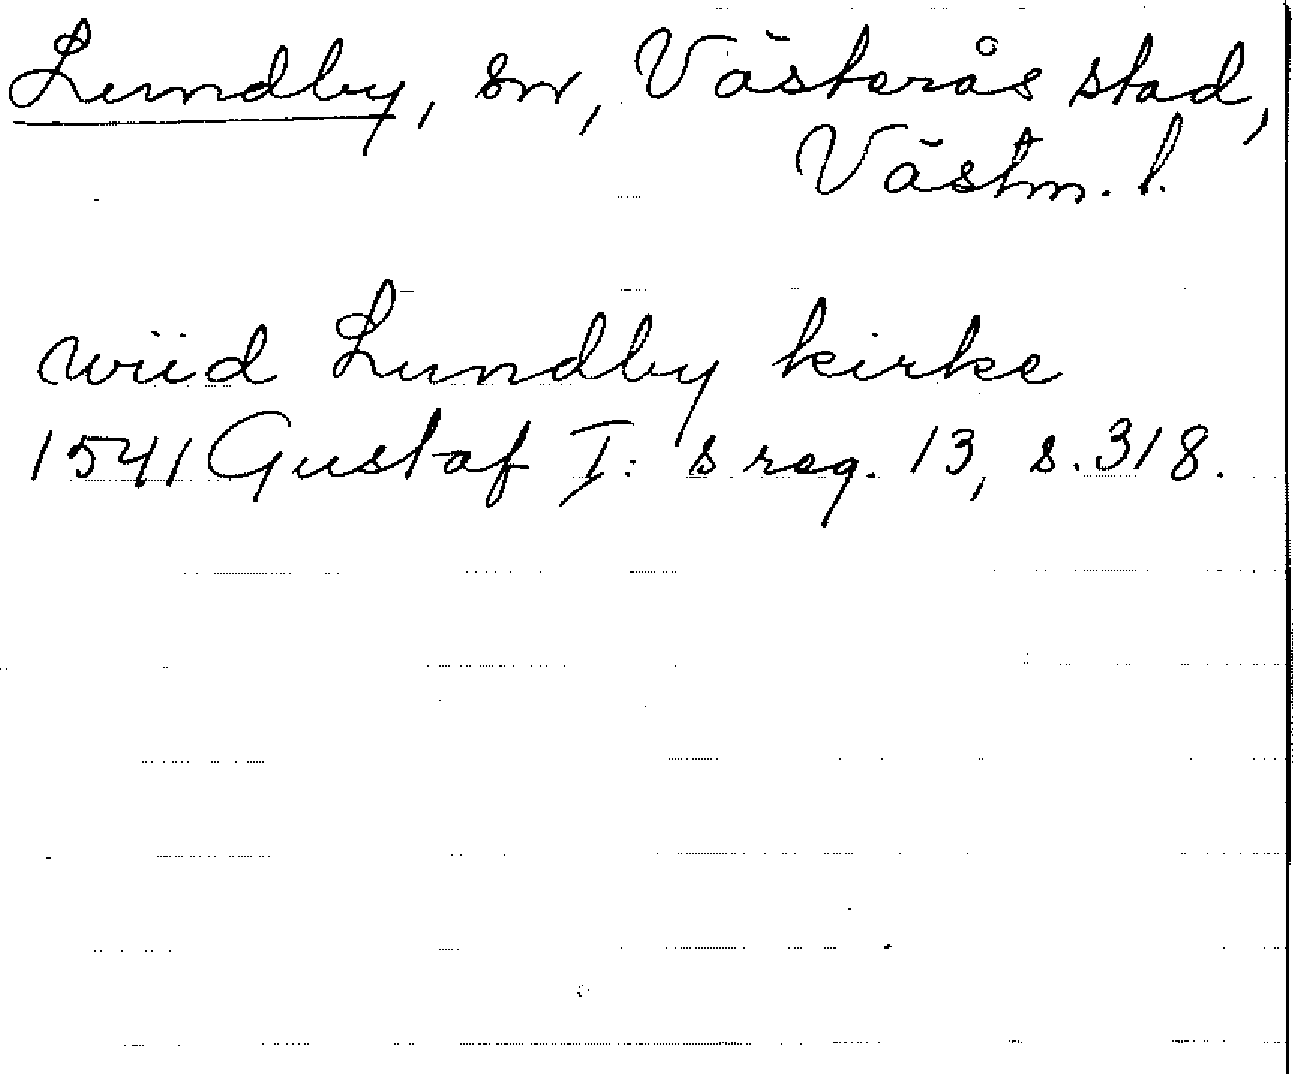 Lundby, sn, Västerås stad,
Västm. l.
wiid Lundby kirke
1541 Gustaf I:s reg. 13, s. 318.